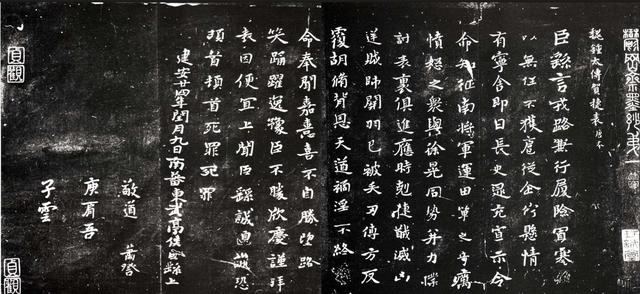 鬱岡齋墨妙
魏鍾太傅賀捷表 唐本
臣繇言戎路兼行履險冒寒臣
以無任不獲扈從企佇懸情無
有寧舍即日長史逮充宣示令
命知征南將軍運田單之奇厲
憤怒之眾與徐晃同勢并力撲
討表裏俱進應時剋捷馘滅凶
逆賊帥關羽已被矢刃傅方反
覆胡脩背恩天道禍淫不終厥
命奉聞嘉憙喜不自勝望路載
笑踊躍逸豫臣不勝欣慶謹拜
表因便宜上聞臣繇誠惶誠恐
頓首頓首死罪死罪
建安廿四年閏月九日南蕃東武亭侯臣繇上
敬道
庾肩吾
子雲
貞觀
貞觀